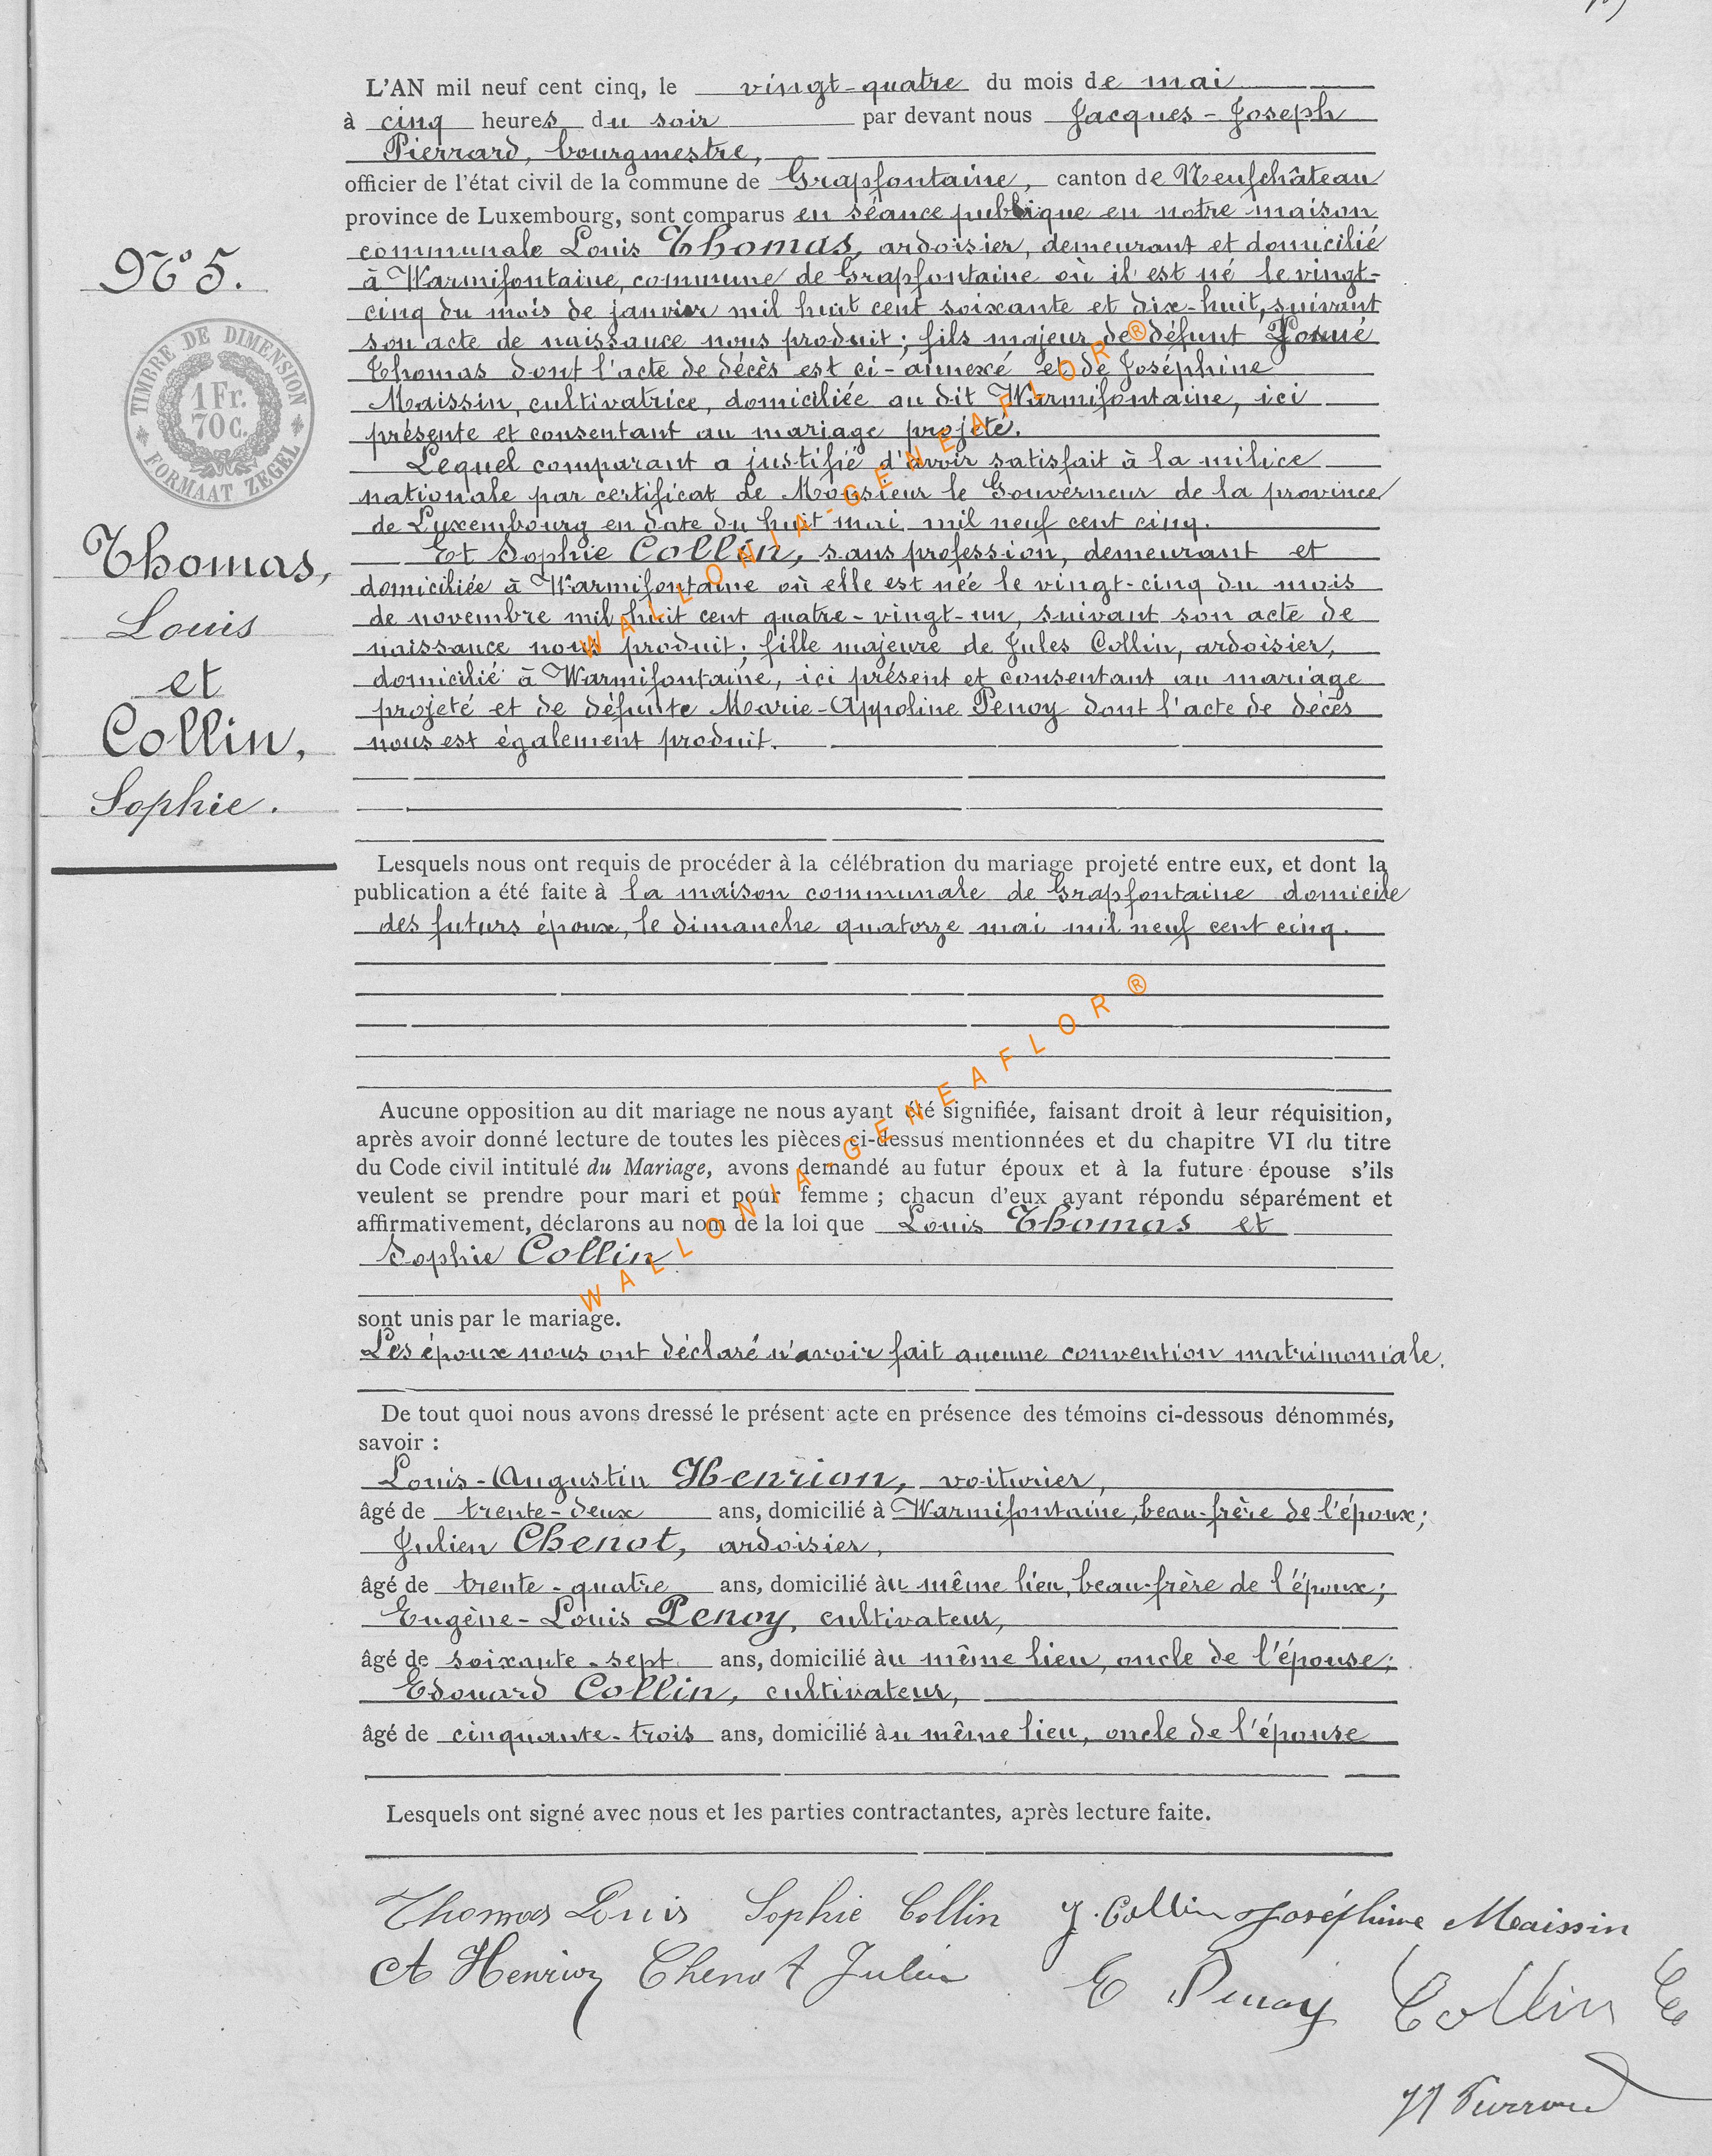 L'AN mil neuf cent cinq, le vingt-quatre du mois de mai
à cinq heures du soir par devant nous Jacques-Joseph
Pierrard, bourgmestre,
officier de l'état civil de la commune de Grapfontaine, canton de Neufchâteau
province de Luxembourg, sont comparus en séance publique en notre maison
communale Louis Thomas, ardoisier, demeurant et domicilié
à Warmifontaine, commune de Grapfontaine où il est né le vingt-
cinq du mois de janvier mil huit cent soixante et dix-huit, suivant
son acte de naissance nous produit; fils majeur de défunt
Thomas dont l'acte de décès est ci-annexé et de Joséphine
Maissin, cultivatrice, domiciliée au dit Warmifontaine, ici
présente et consentant au mariage projeté.
Lequel comparant a justifié d'avoir satisfait à la milice
nationale par certificat de Monsieur le Gouverneur de la province
de Luxembourg en date du huit mai mil neuf cent cinq.
Et Sophie Collin, sans profession, demeurant et
domiciliée à Warmifontaine où elle est née le vingt-cinq du mois
de novembre mil huit cent quatre-vingt-un, suivant son acte de
naissance nous produit; fille majeure de Jules Collin, ardoisier,
domicilié à Warmifontaine, ici présent et consentant au mariage
projeté et de défunte Marie-Appoline Penoy dont l'acte de décès
nous est également produit.
N° 5.
TIMBRE DE DIMENSION
1 Fr.
70 c.
FORMAAT ZEGEL
Thomas,
Louis
et
Collin,
Sophie.
Lesquels nous ont requis de procéder à la célébration du mariage projeté entre eux, et dont la
publication a été faite à la maison communale de Grapfontaine domicile
des futurs époux, le dimanche quatorze mai mil neuf cent cinq.
Aucune opposition au dit mariage ne nous ayant été signifiée, faisant droit à leur réquisition,
après avoir donné lecture de toutes les pièces ci-dessus mentionnées et du chapitre VI du titre
du Code civil intitulé du Mariage, avons demandé au futur époux et à la future épouse s'ils
veulent se prendre pour mari et pour femme ; chacun d'eux ayant répondu séparément et
affirmativement, déclarons au nom de la loi que Louis Thomas et
Sophie Collin
sont unis par le mariage.
Les époux nous ont déclaré n'avoir fait aucune convention matrimoniale.
De tout quoi nous avons dressé le présent acte en présence des témoins ci-dessous dénommés,
savoir :
Louis-Augustin Henrion, voiturier,
âgé de trente-deux ans, domicilié à Warmifontaine, beau-frère de l'époux;
Julien Chenot, ardoisier,
âgé de trente-quatre ans, domicilié au même lieu, beau-frère de l'époux;
Eugène-Louis Penoy, cultivateur,
âgé de soixante-sept ans, domicilié au même lieu, oncle de l'épouse;
Edouard Collin, cultivateur,
âgé de cinquante-trois ans, domicilié au même lieu, oncle de l'épouse
Lesquels ont signé avec nous et les parties contractantes, après lecture faite.
Thomas Louis Sophie Collin J. Collin Joséphine Maissin
A Henrion Chenot Julien E Penoy Collin E
JJ Pierrard
WALLONIA-GENEAFLOR®
WALLONIA-GENEAFLOR®